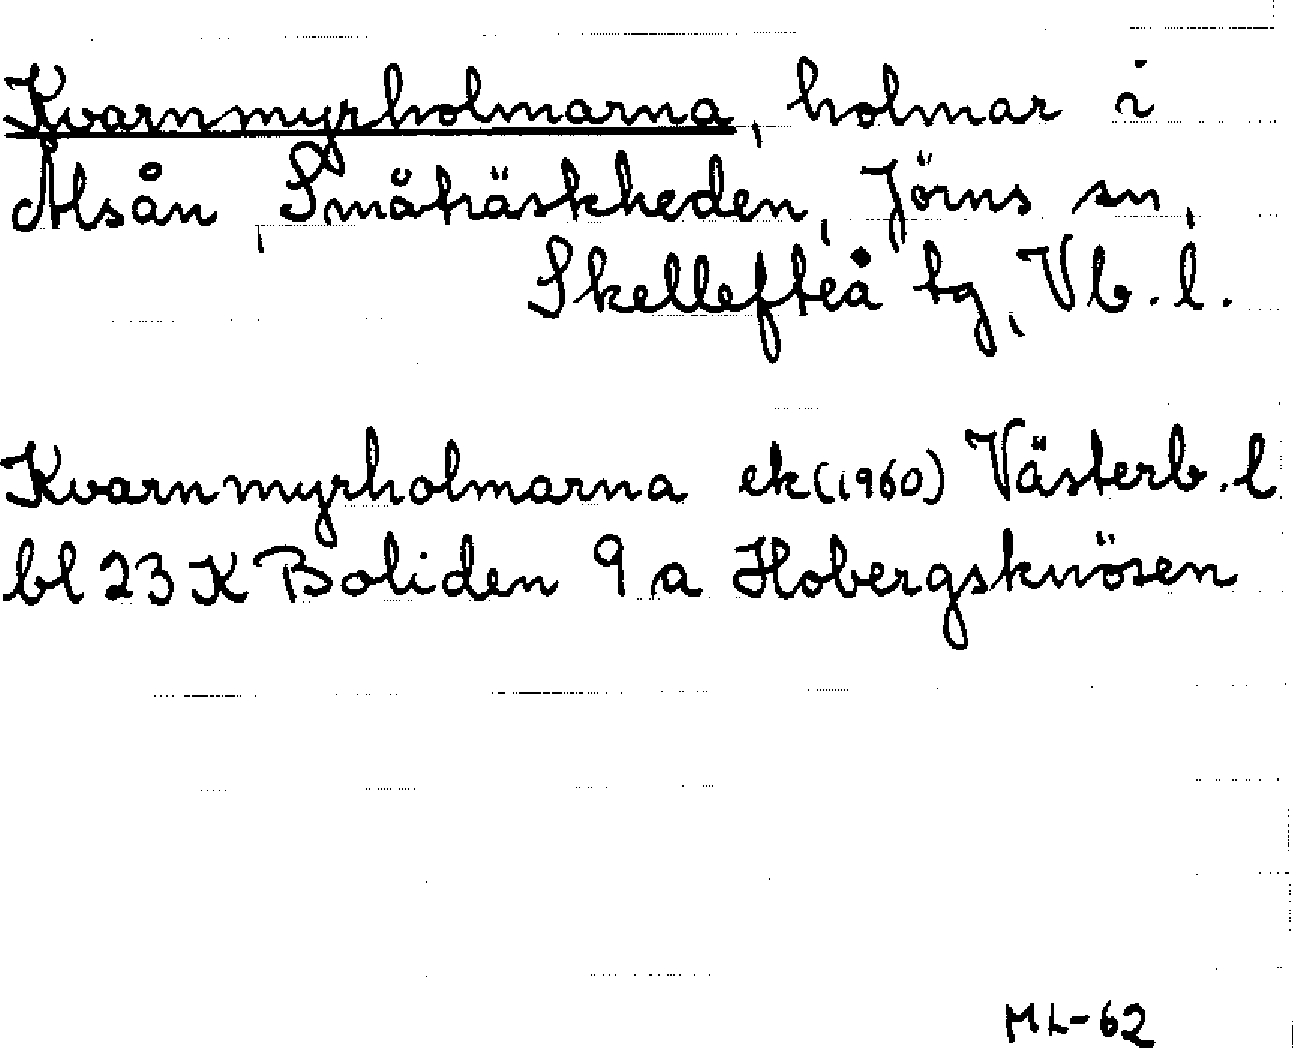 Kvarnmyrholmarna, holmar i
Alsån, Småträskheden, Jörns sn,
Skellefteå tg, Vb. l.
Kvarnmyrholmarna ek (1960) Västerb. l
bl 23 K Boliden 9 a Hobergsknösen
ML-62